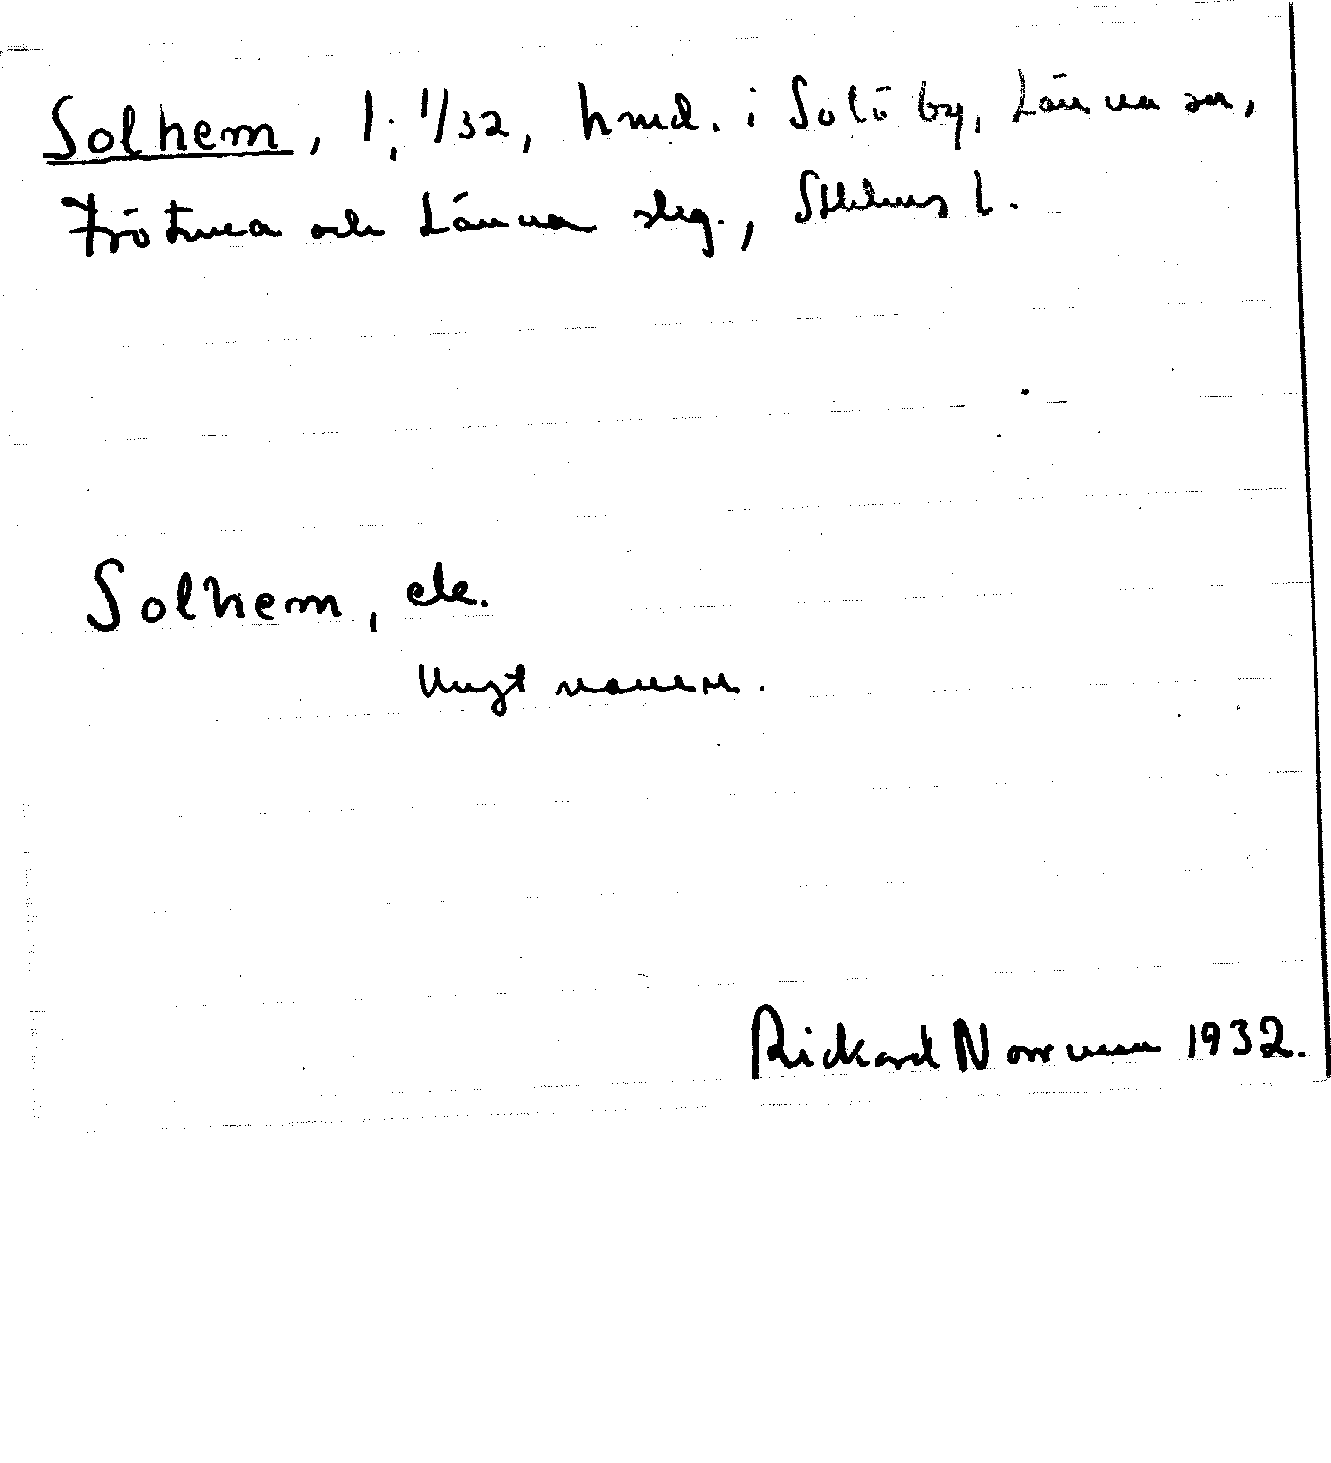 Solhem, 1; 1/32, hmd. i Solö by, Länna sn,
Frötuna och Länna skg., Sthlms l.
Solhem, ele.
Ungt namn.
Rickard Norrman 1932.